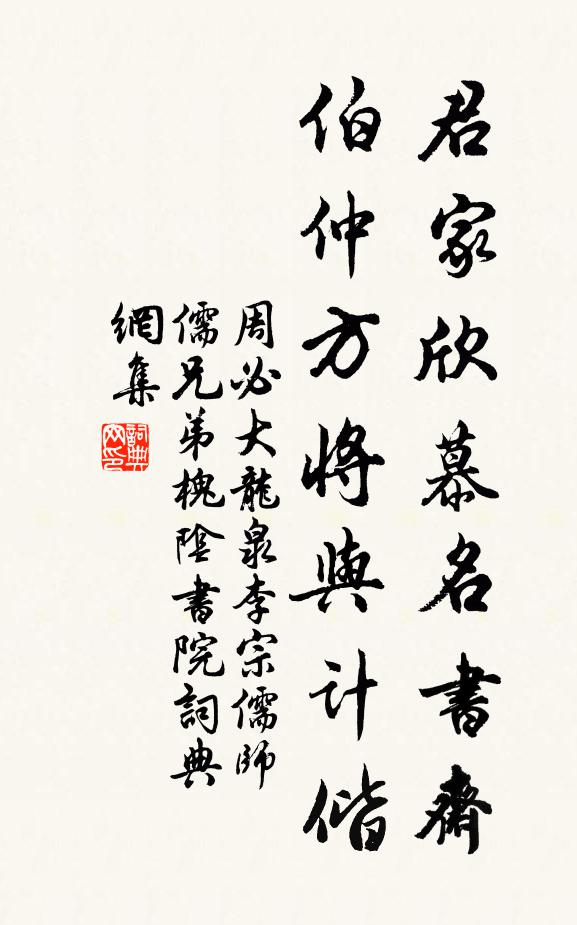 君家欣慕名書齋
伯仲方將與计偕
周必大龍泉李宗儒師
儒兄弟槐陰書院詞典
網集
詞典网印